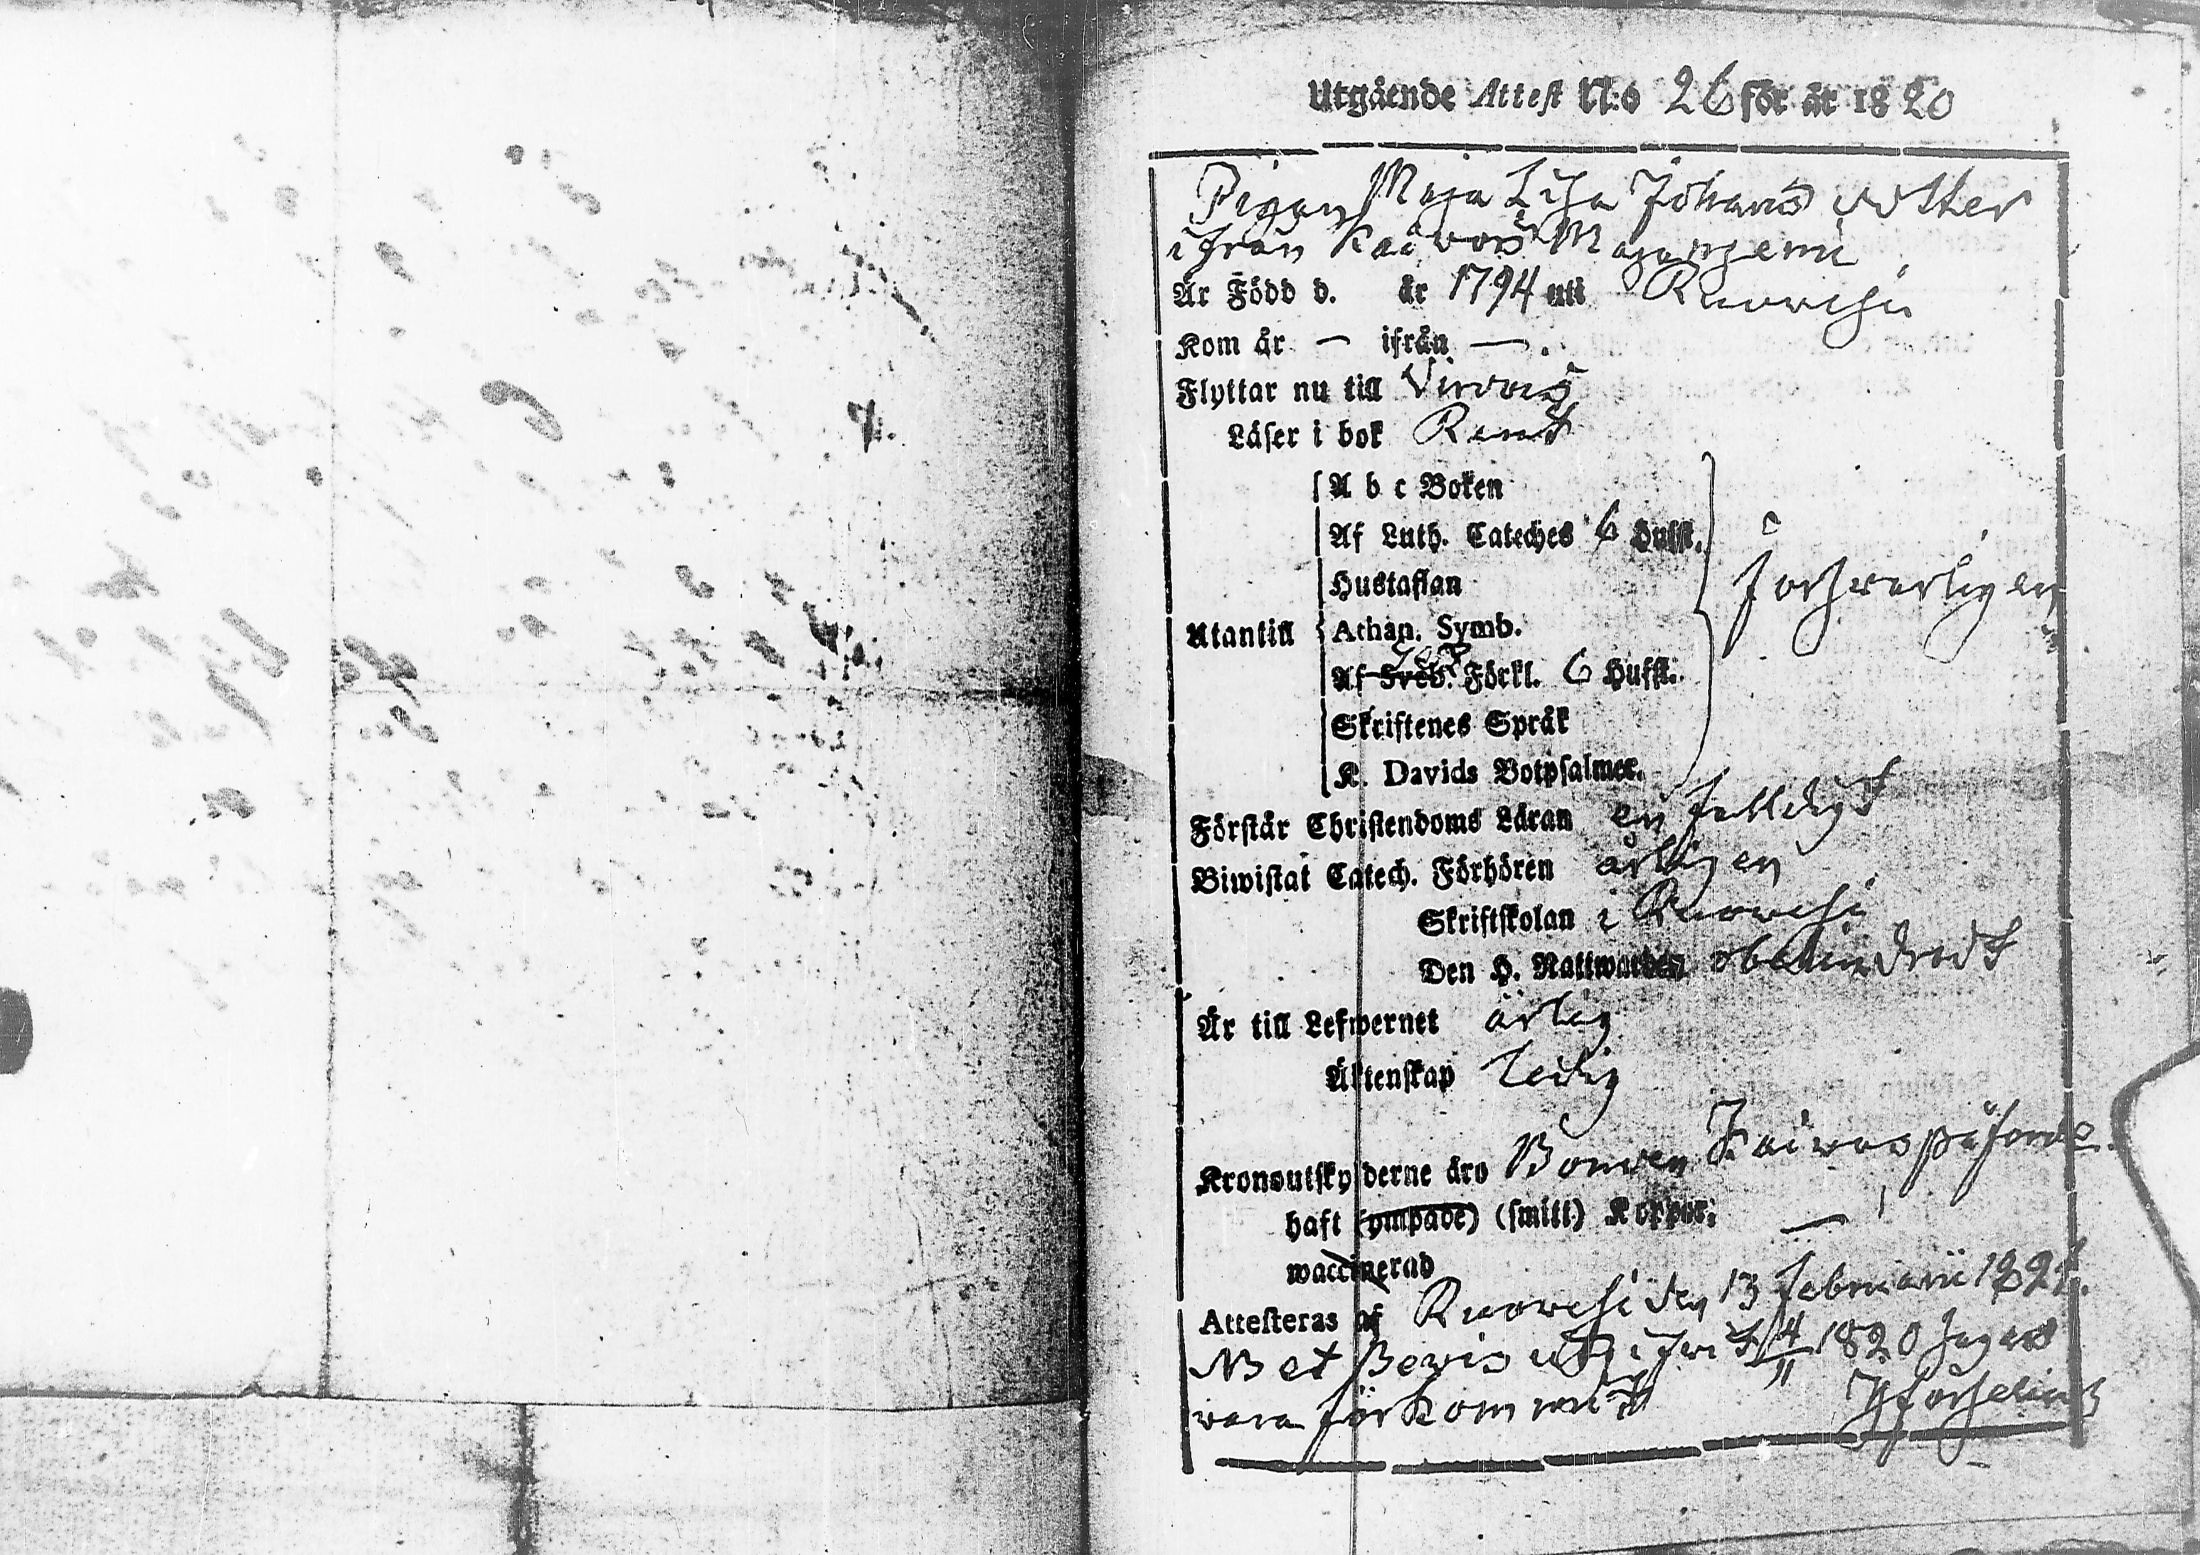 Utgående Attest N:o 26 för år 1820
Pigan Maja Lisa Johans dotter
ifrån Kaivos Magazeni
Är Född d. år 1794 uti Ruovesi
Kom år — ifrån —.
Flyttar nu till Virdois
Läser i bok Rent
A b c Boken
Af Luth. Cateches 6 Hufst.
Hustaflan
Försvarligen
Utantill
Athan. Symb.
Af Sveb. Förkl. 6 Hufst.
Skriftenes Språk
K. Davids Botpsalmer.
Förstår Christendoms Läran enfalldigt
Biwistat Catech. Förhören årligen
Skriftskolan i Ruovesi
Den H. Nattwarden obehindradt
Är till Lefwernet ärlig
Äktenskap Ledig
Kronoutskylderne äro Bonden Kaivos påförde.
haft (ympade) (smitt) Koppor. —
waccinerad
Attesteras af Ruovesi den 13 Februarii 1821.
NB et Bevis utgifvit 4/11 1820 säges
vara förkommit